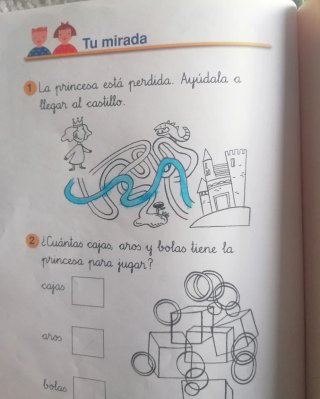 Tu mirada
1 La princesa está perdida. Ayúdala a
llegar al castillo.
2 ¿Cuántas cajas, aros y bolas tiene la
princesa para jugar?
cajas
aros
bolas